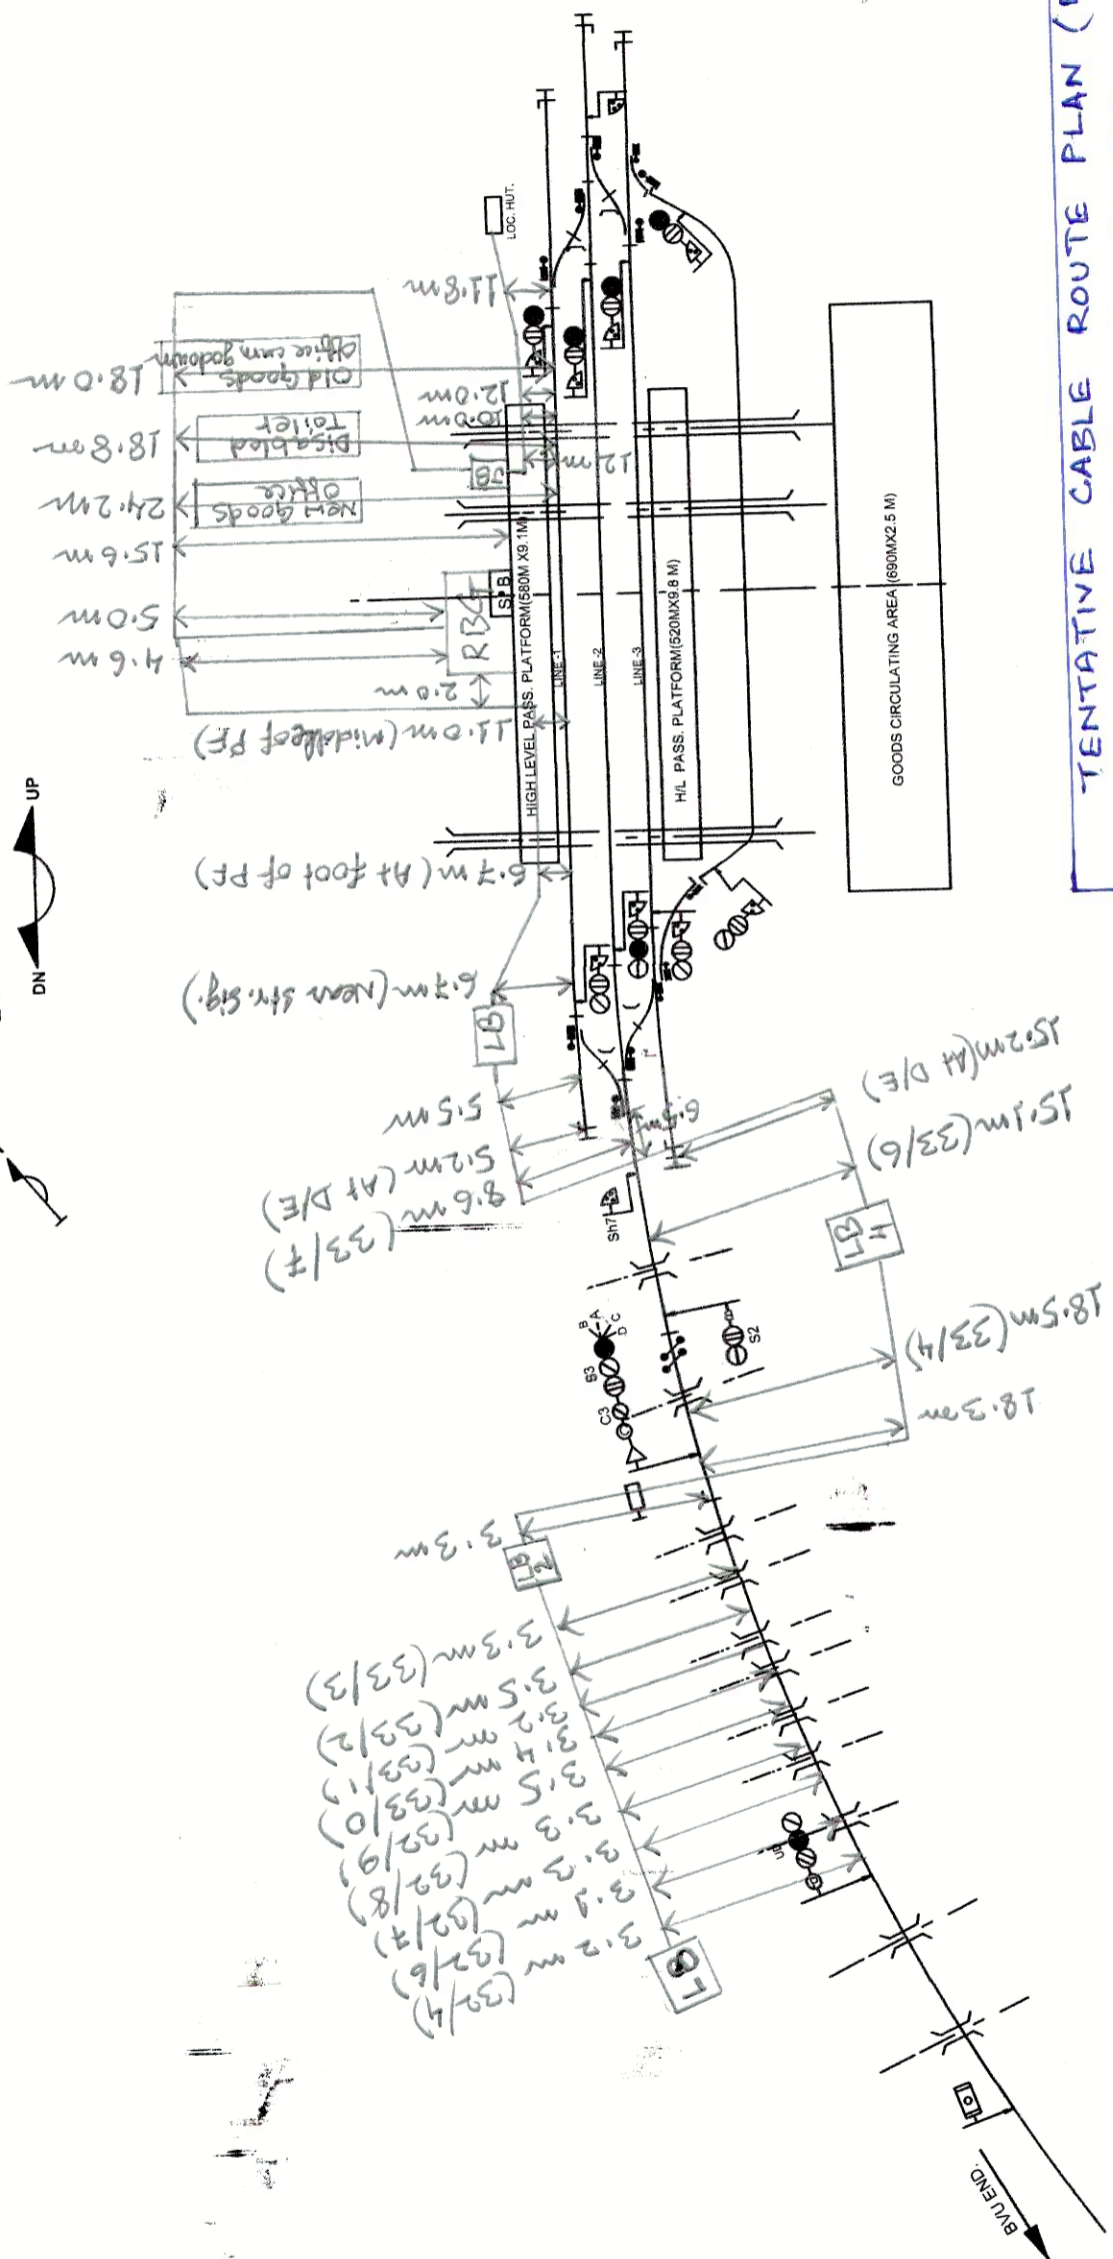 TENTATIVE CABLE ROUTE PLAN
DN
UP
LOC. HUT.
11.8 m
Old Goods
Office cum godown
18.0 m
12.0m
10.0m
Disabled
Toilet
18.8m
JB
12 m
New Goods
Office
24.2m
15.6 m
5.0m
4.6 m
RBCT
S B
2.0 m
11.0 m (Middle of PF)
HIGH LEVEL PASS. PLATFORM(580M X9.1M)
LINE-1
LINE -2
LINE-3
H/L PASS. PLATFORM(520MX9.8 M)
GOODS CIRCULATING AREA (690MX2.5 M)
6.7 m (At foot of PF)
6.7 m (Near Str. Sig.)
LB
5.5 m
5.2 m (At D/E)
8.6 m (33/7)
6.5m
15.2m (At D/E)
15.1m (33/6)
LB
4
18.5m (33/4)
18.3m
Sh7
S2
S3
C3
A
B
C
D
3.3 m
LB
2
3.3 m (33/3)
3.5 m (33/2)
3.2 m (33/1)
3.4 m (33/0)
3.5 m (32/9)
3.3 m (32/8)
3.3 m (32/7)
3.1 m (32/6)
3.2 m (32/4)
BVU END.